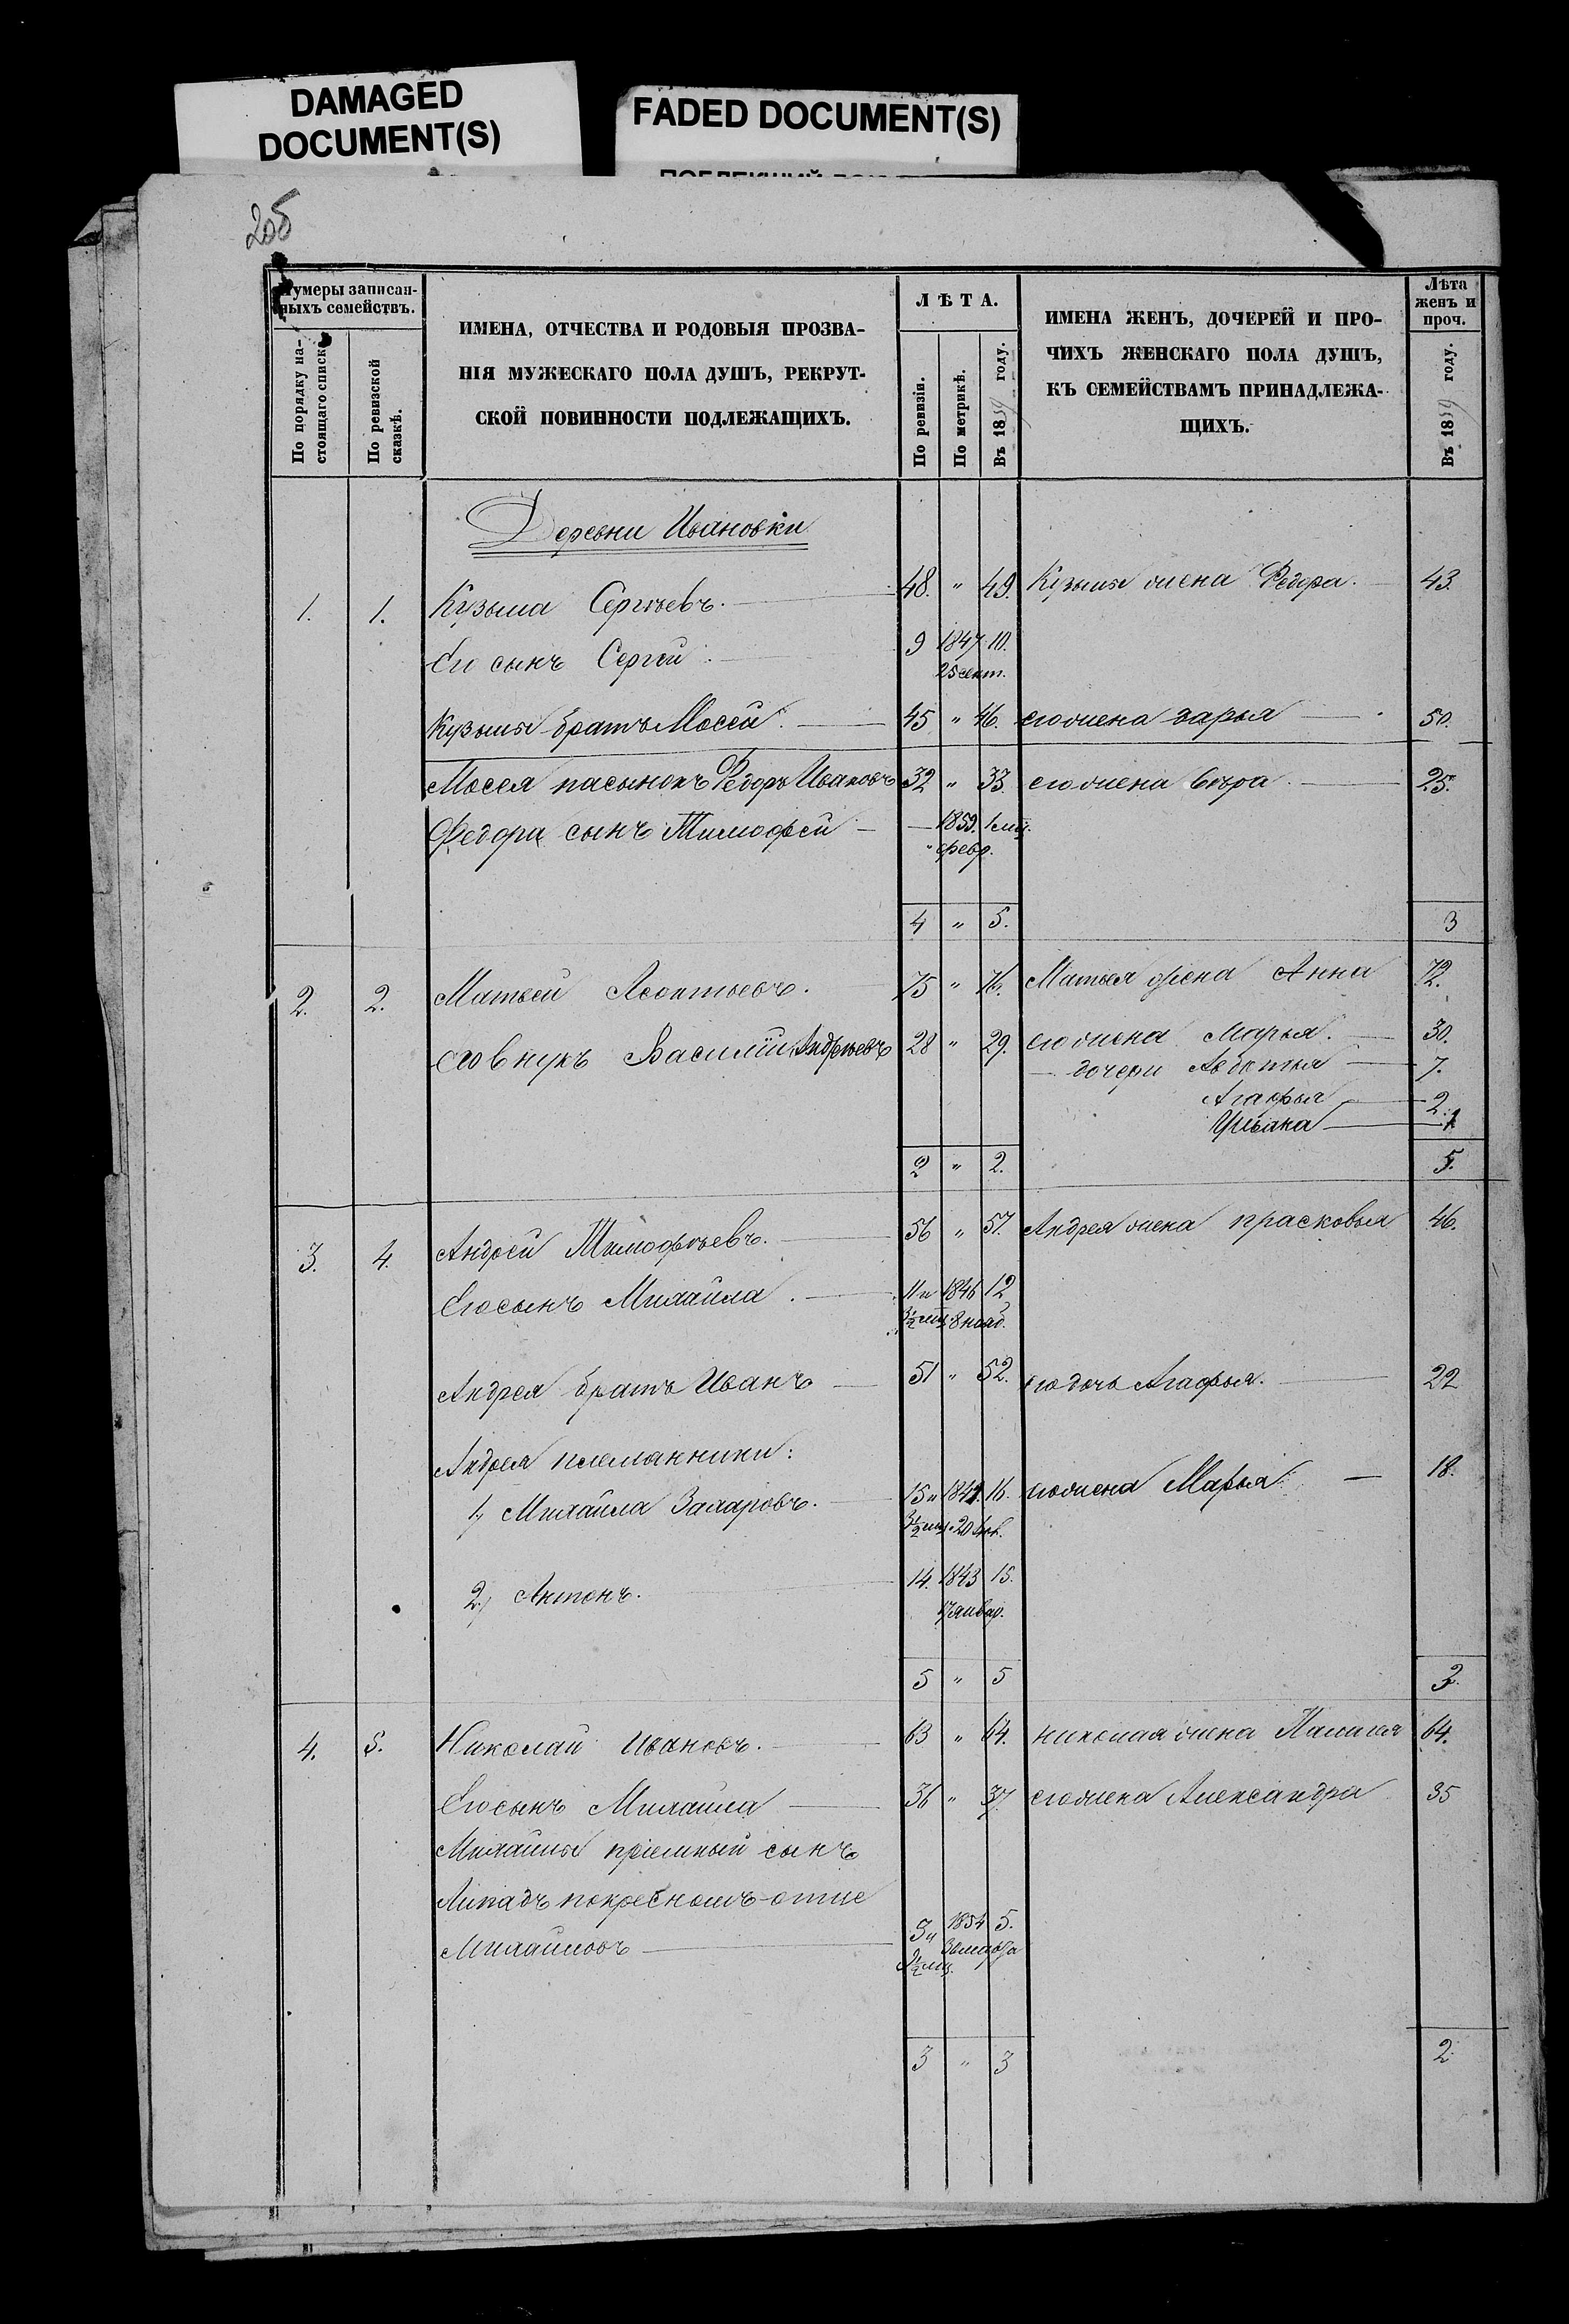 DAMAGED
DOCUMENT(S)
FADED DOCUMENT(S)
205
Нумеры записан-
ныхъ семействъ.
По порядку на-
стоящаго списка
По ревизской
сказкѣ.
ИМЕНА, ОТЧЕСТВА И РОДОВЫЯ ПРОЗВА-
НІЯ МУЖЕСКАГО ПОЛА ДУШЪ, РЕКРУТ-
СКОЙ ПОВИННОСТИ ПОДЛЕЖАЩИХЪ.
ЛѢТА.
По ревизіи.
По метрикѣ.
Въ 1859 году.
ИМЕНА ЖЕНЪ, ДОЧЕРЕЙ И ПРО-
ЧИХЪ ЖЕНСКАГО ПОЛА ДУШЪ,
КЪ СЕМЕЙСТВАМЪ ПРИНАДЛЕЖА-
ЩИХЪ.
Лѣта
женъ и
проч.
Въ 1859 году.
Деревни Ивановки
1. 1. Кузьма Сергѣевъ. 48. " 49. Кузьмы жена Федора. 43.
Его сынъ Сергей. 9 1847 10.
25 сент.
Кузьмы братъ Мосей. 45 " 46. его жена Дарья 50.
Мосея пасынокъ Федоръ Ивановъ 32 " 33. его жена Вѣра 25.
Федора сынъ Тимофей — 1859. 1 мц.
" февр.
4 " 5. 3
2. 2. Матвей Леонтьевъ. 75 " 76. Матвея жена Анна 72.
его внукъ Василій Андреѣевъ 28 " 29. его жена Марья. 30.
— дочери Авдотья 7.
Агафья 2.
Ульяна 1
2 " 2. 5.
3. 4. Андрей Тимофѣевъ. 56 " 57. Андрея жена Прасковья 46.
Его сынъ Михайла. 11 и 1846 12
½ мц. 8 нояб.
Андрея братъ Иванъ 51 " 52. его дочь Агафья. 22
Андрея племянники:
1, Михайла Захаровъ. 15 и 1842. 16. его жена Марья 18.
½ мц. 20
2, Антонъ. 14. 1843 15.
17 январ.
5 " 5 3.
4. 5. Николай Ивановъ. 63 " 64. Николая жена 64.
Его сынъ Михайла 36 " 37. его жена Александра 35
Михайлы пріемный сынъ
покресномъ отце
Михайловъ 3 и 1854 5.
½ мц. марта
3 " 3 2